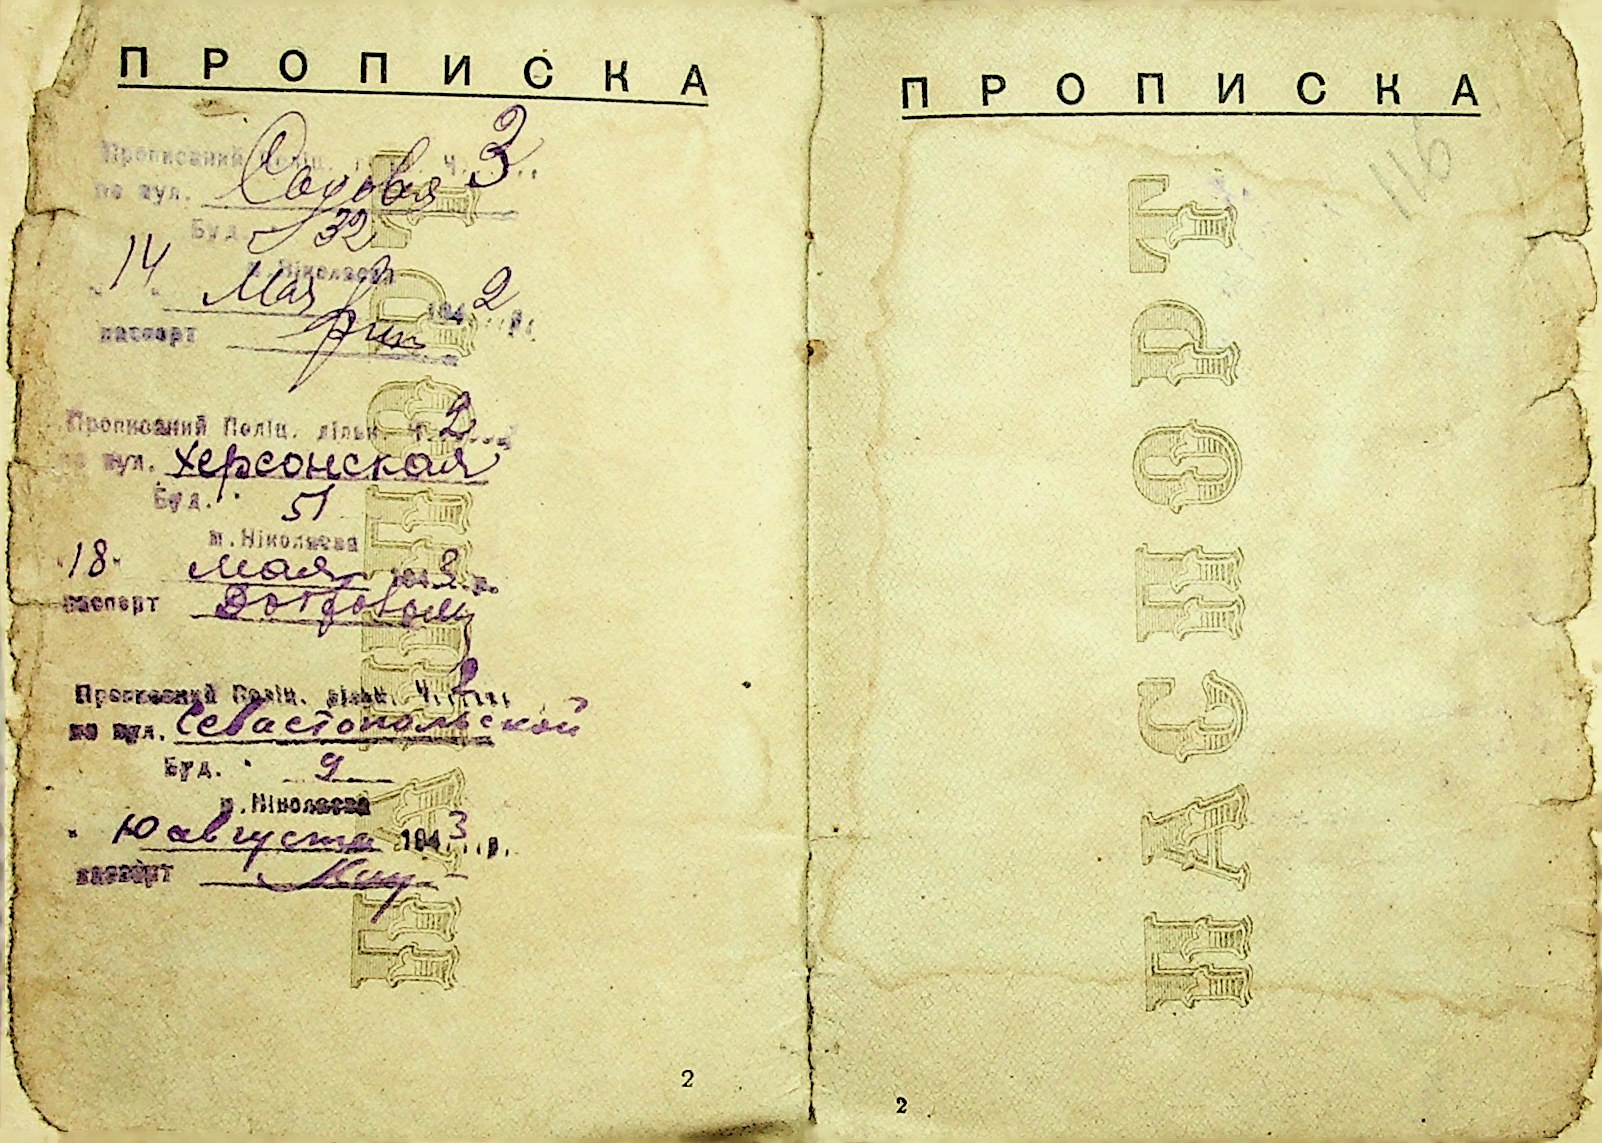 ПРОПИСКА
Прописаний Поліц. дільн. Ч. 3
по вул. Садовая
Буд. 32
м. Ніколаєва
14 Мая 1942 р.
паспорт
Прописаний Поліц. дільн. Ч. 2
по вул. Херсонская
Буд. 51
м. Ніколаєва
"18" мая 194 р.
паспорт
Прописаний Поліц. дільн. Ч.
по вул. Севастопольской
Буд. 9
м. Ніколаєва
10 августа 1943 р.
паспорт
ПАСПОРТ
2
ПРОПИСКА
116
ПАСПОРТ
2